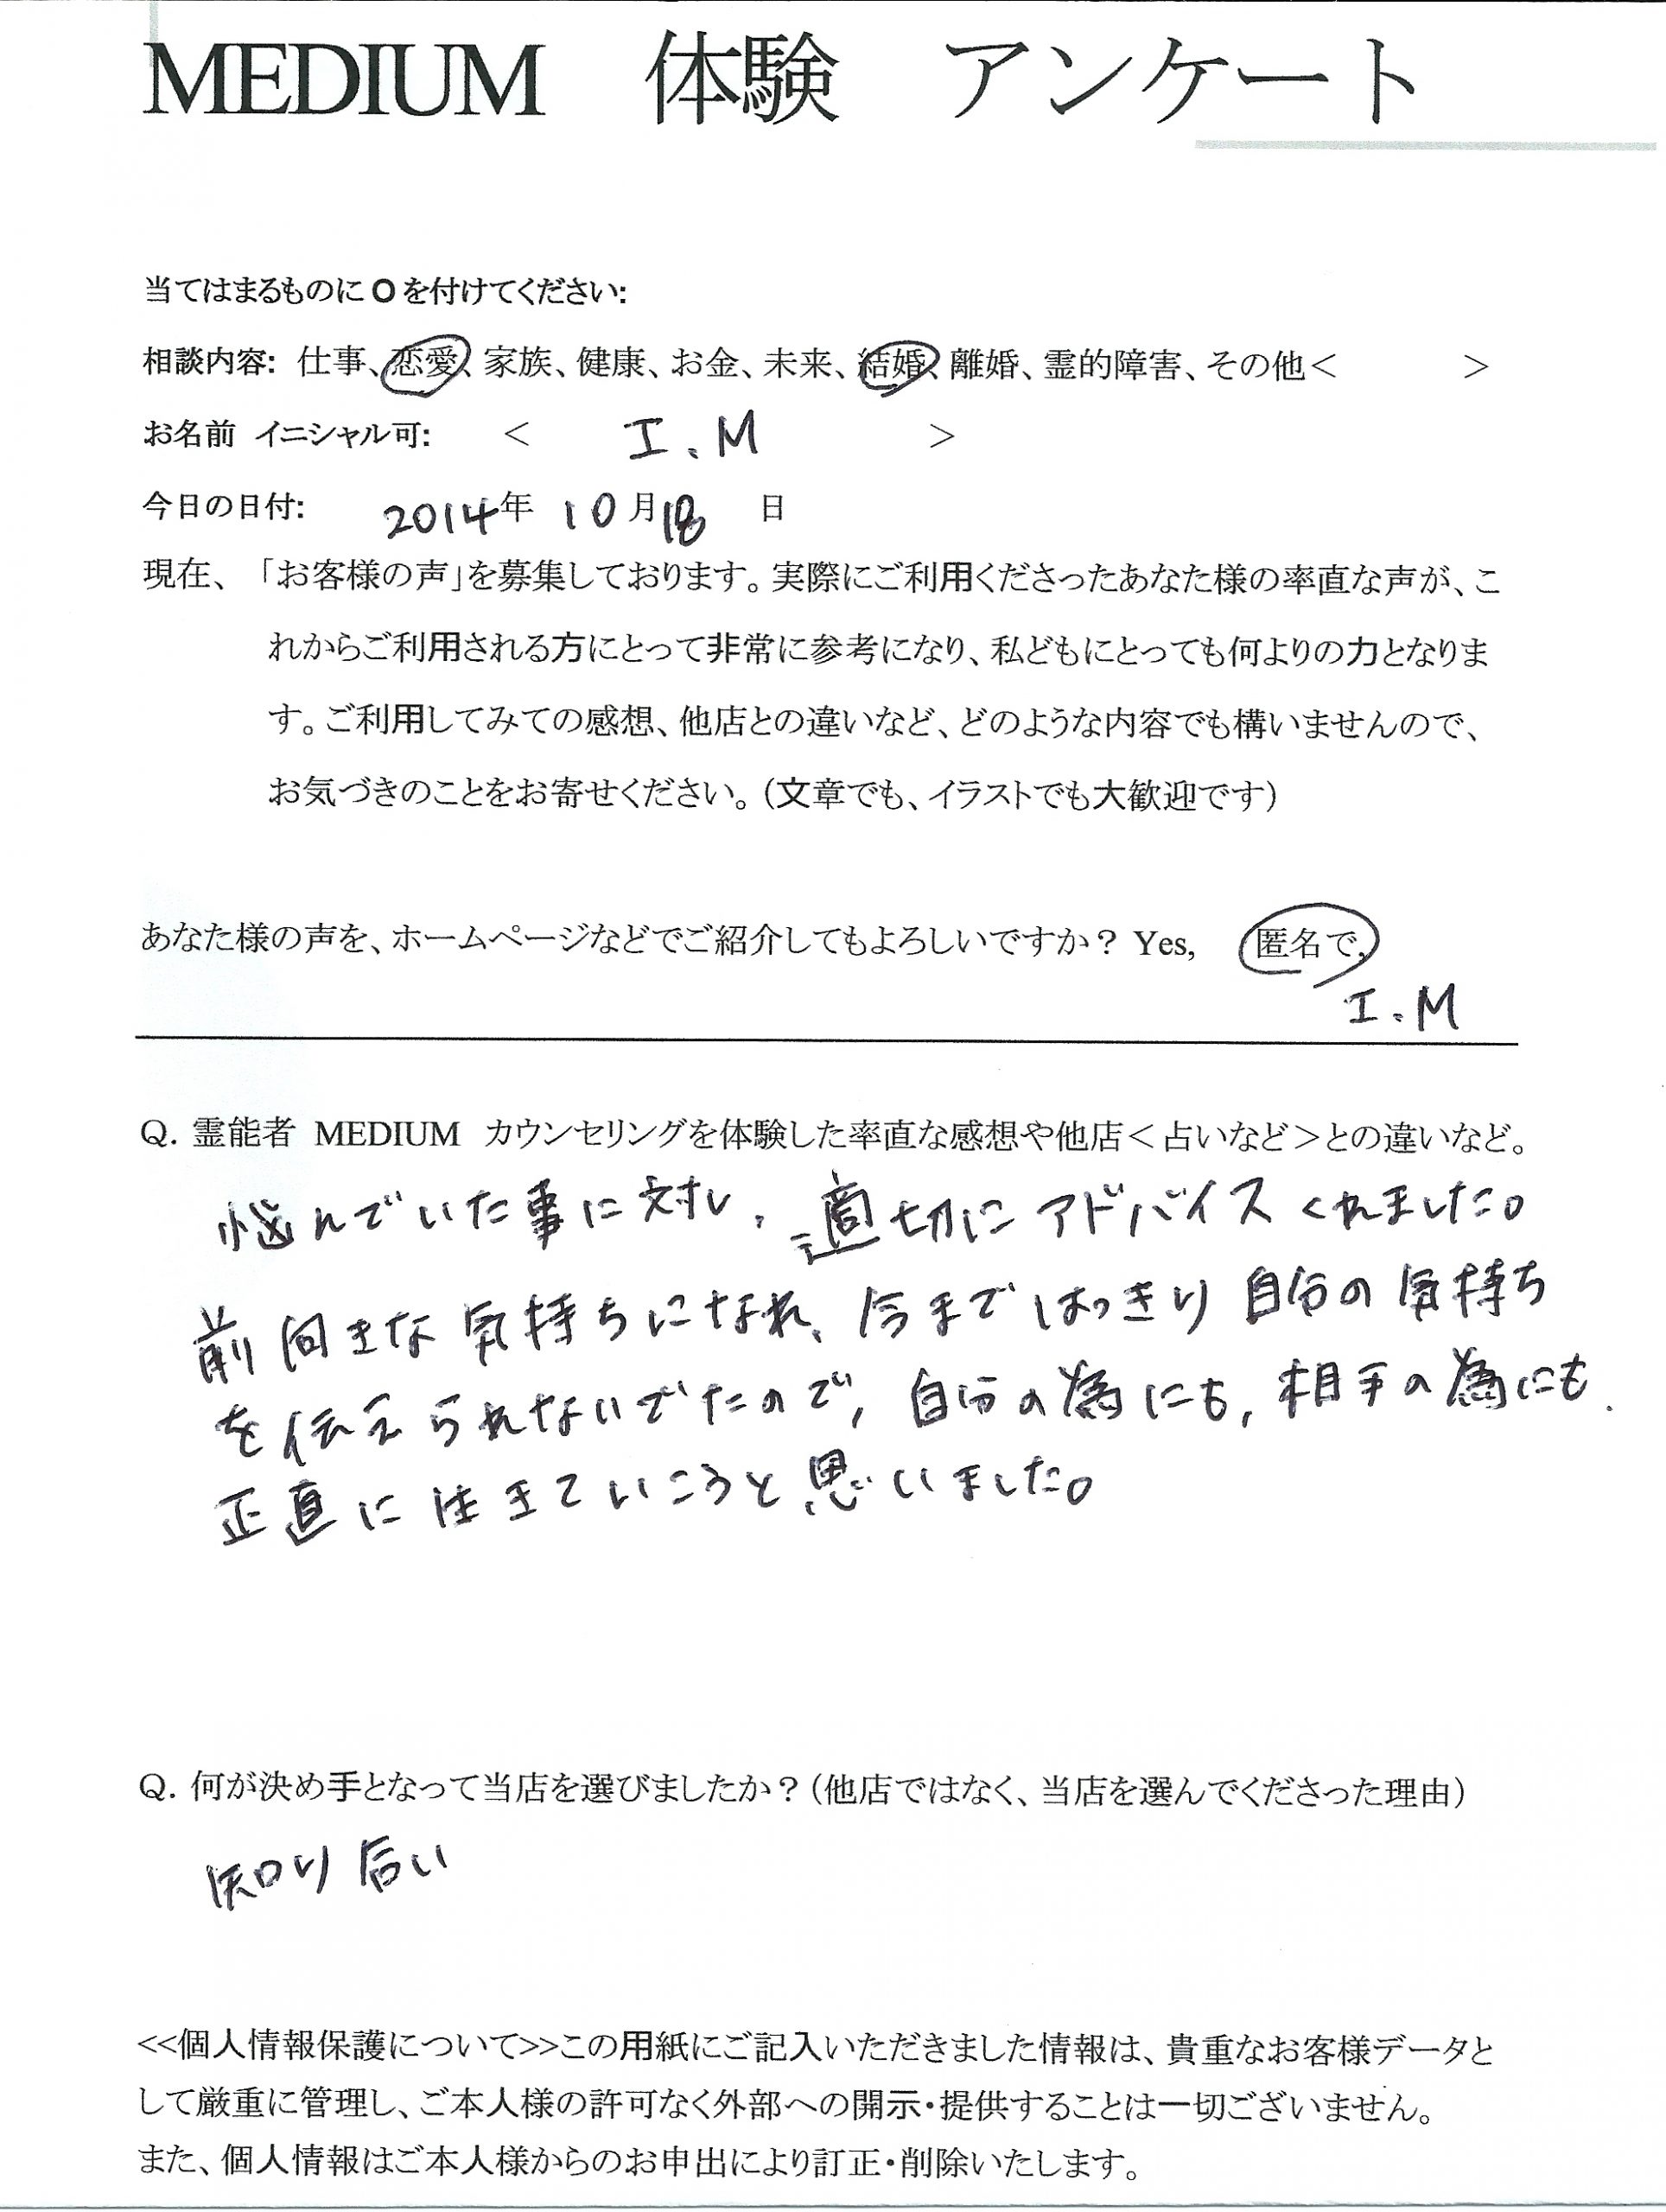 MEDIUM　体験　アンケート
当てはまるものに O を付けてください:
相談内容: 仕事、恋愛、家族、健康、お金、未来、結婚、離婚、霊的障害、その他＜　　　　＞
お名前 イニシャル可:　＜　I.M　＞
今日の日付:　2014年 10月18 日
現在、「お客様の声」を募集しております。実際にご利用くださったあなた様の率直な声が、こ
れからご利用される方にとって非常に参考になり、私どもにとっても何よりの力となりま
す。ご利用してみての感想、他店との違いなど、どのような内容でも構いませんので、
お気づきのことをお寄せください。（文章でも、イラストでも大歓迎です）
あなた様の声を、ホームページなどでご紹介してもよろしいですか？ Yes,　匿名で,
I.M
Q. 霊能者 MEDIUM カウンセリングを体験した率直な感想や他店＜占いなど＞との違いなど。
悩んでいた事に対し、適切にアドバイスくれました。
前向きな気持ちになれ、今まではっきり自分の気持ち
を伝えられないでたので, 自分の為にも, 相手の為にも.
正直に生きていこうと思いました。
Q. 何が決め手となって当店を選びましたか？（他店ではなく、当店を選んでくださった理由）
知り合い
<<個人情報保護について>>この用紙にご記入いただきました情報は、貴重なお客様データと
して厳重に管理し、ご本人様の許可なく外部への開示・提供することは一切ございません。
また、個人情報はご本人様からのお申出により訂正・削除いたします。